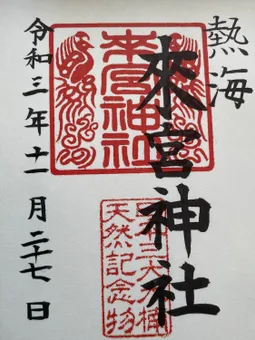 熱海
來宮神社
令和三年十一月二十七日
來宮神社
日本三大大楠
天然記念物